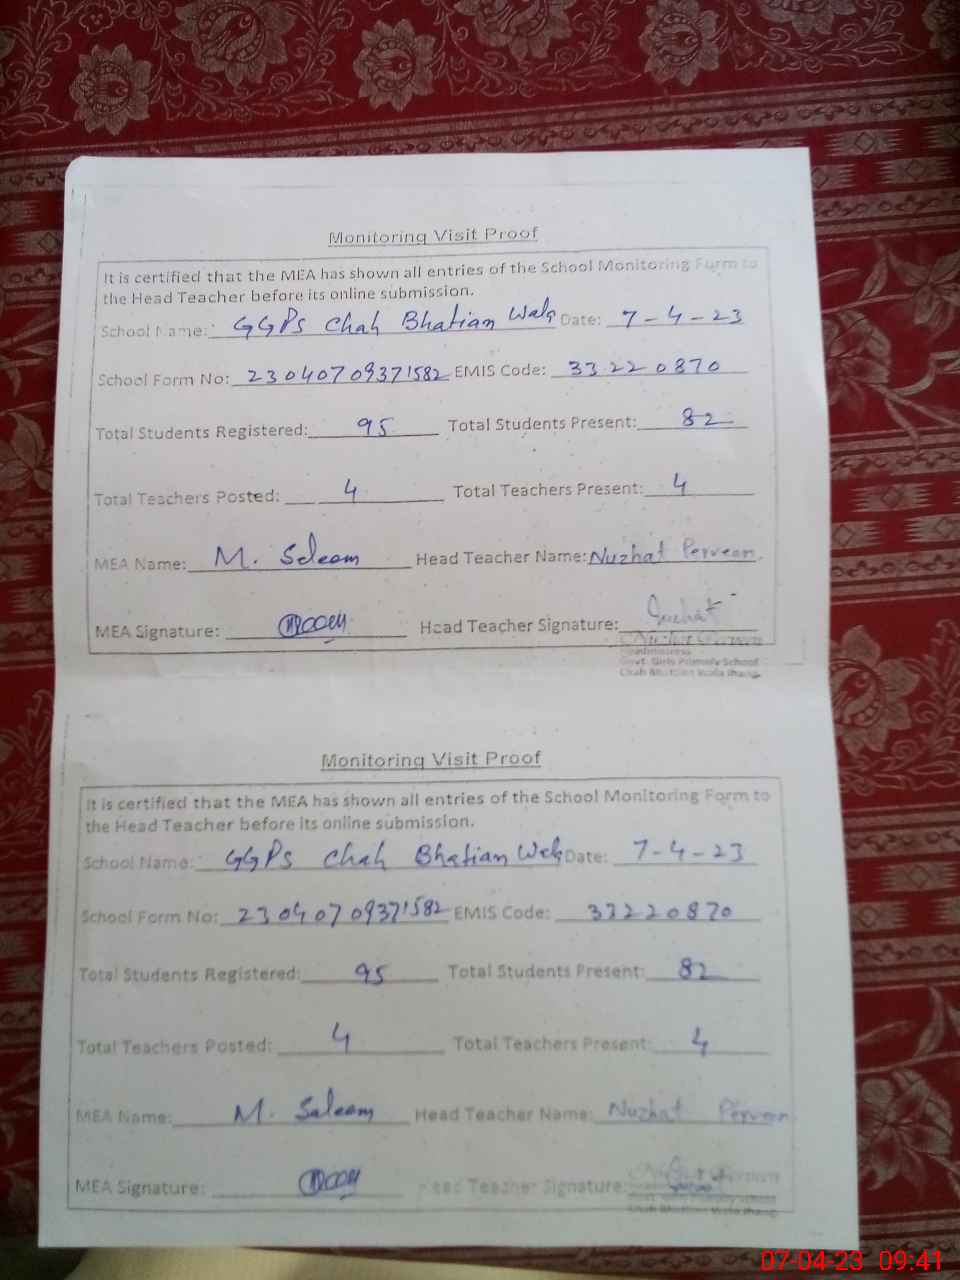 Monitoring Visit Proof
It is certified that the MEA has shown all entries of the School Monitoring Form to
the Head Teacher before its online submission.
School Name: GGPS Chah Bhatian Wala Date: 7-4-23
School Form No: 23040709371582 EMIS Code: 33220870
Total Students Registered: 95 Total Students Present: 82
Total Teachers Posted: 4 Total Teachers Present: 4
MEA Name: M. Saleem Head Teacher Name: Nuzhat Perveen
MEA Signature: Head Teacher Signature: Nuzhat
Headmistress
Govt. Girls Primary School
Chah Bhattian Wala Jhang.
Monitoring Visit Proof
It is certified that the MEA has shown all entries of the School Monitoring Form to
the Head Teacher before its online submission.
School Name: GGPS Chah Bhatian Wala Date: 7-4-23
School Form No: 23040709371582 EMIS Code: 33220870
Total Students Registered: 95 Total Students Present: 82
Total Teachers Posted: 4 Total Teachers Present: 4
MEA Name: M. Saleem Head Teacher Name: Nuzhat Perveen
MEA Signature: Head Teacher Signature:
Govt. Girls Primary School
Chah Bhattian Wala Jhang.
07-04-23 09:41